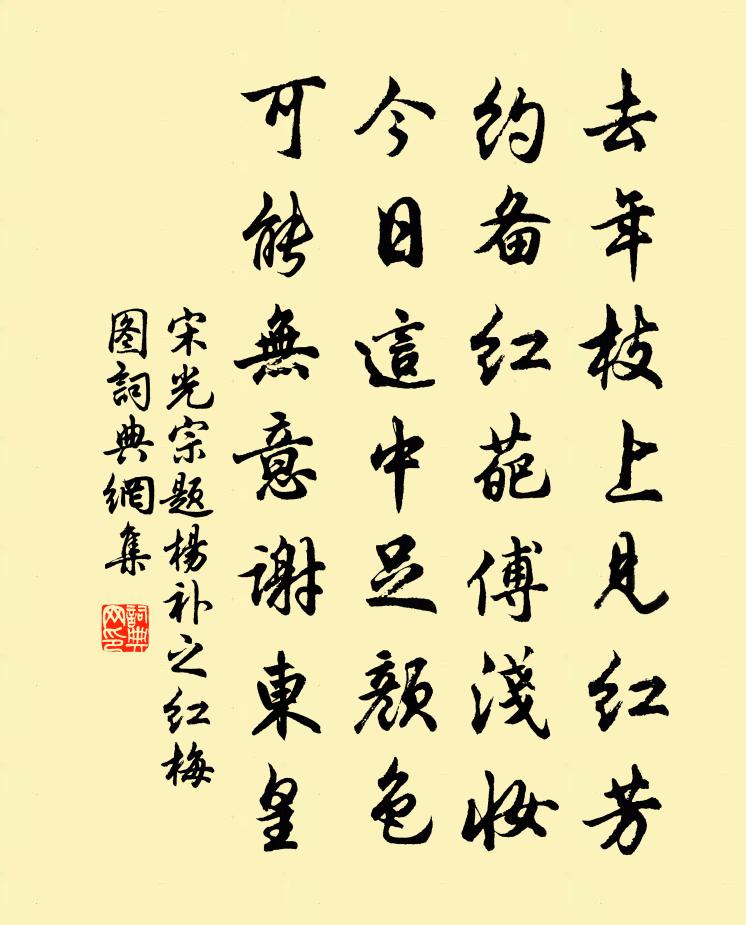 去年枝上見红芳
约畧红葩傅淺妝
今日這中足顔色
可能無意謝東皇
宋光宗題楊补之红梅
图詞典網集
詞典網印